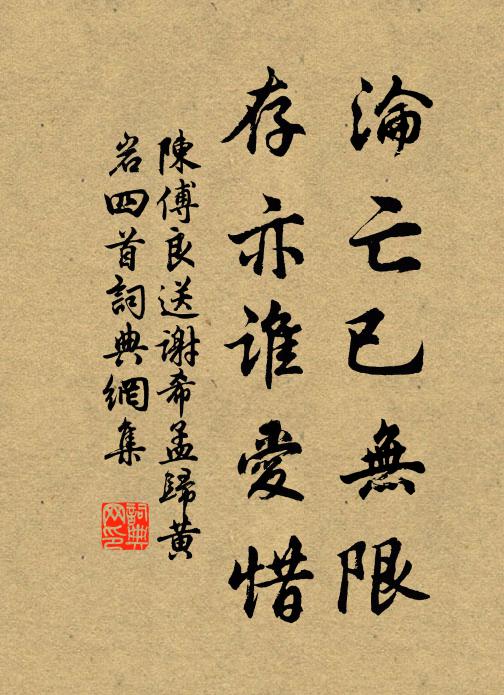 淪亡已無限
存亦誰愛惜
陳傅良送謝希孟歸黃
岩四首詞典網集
詞典
网印